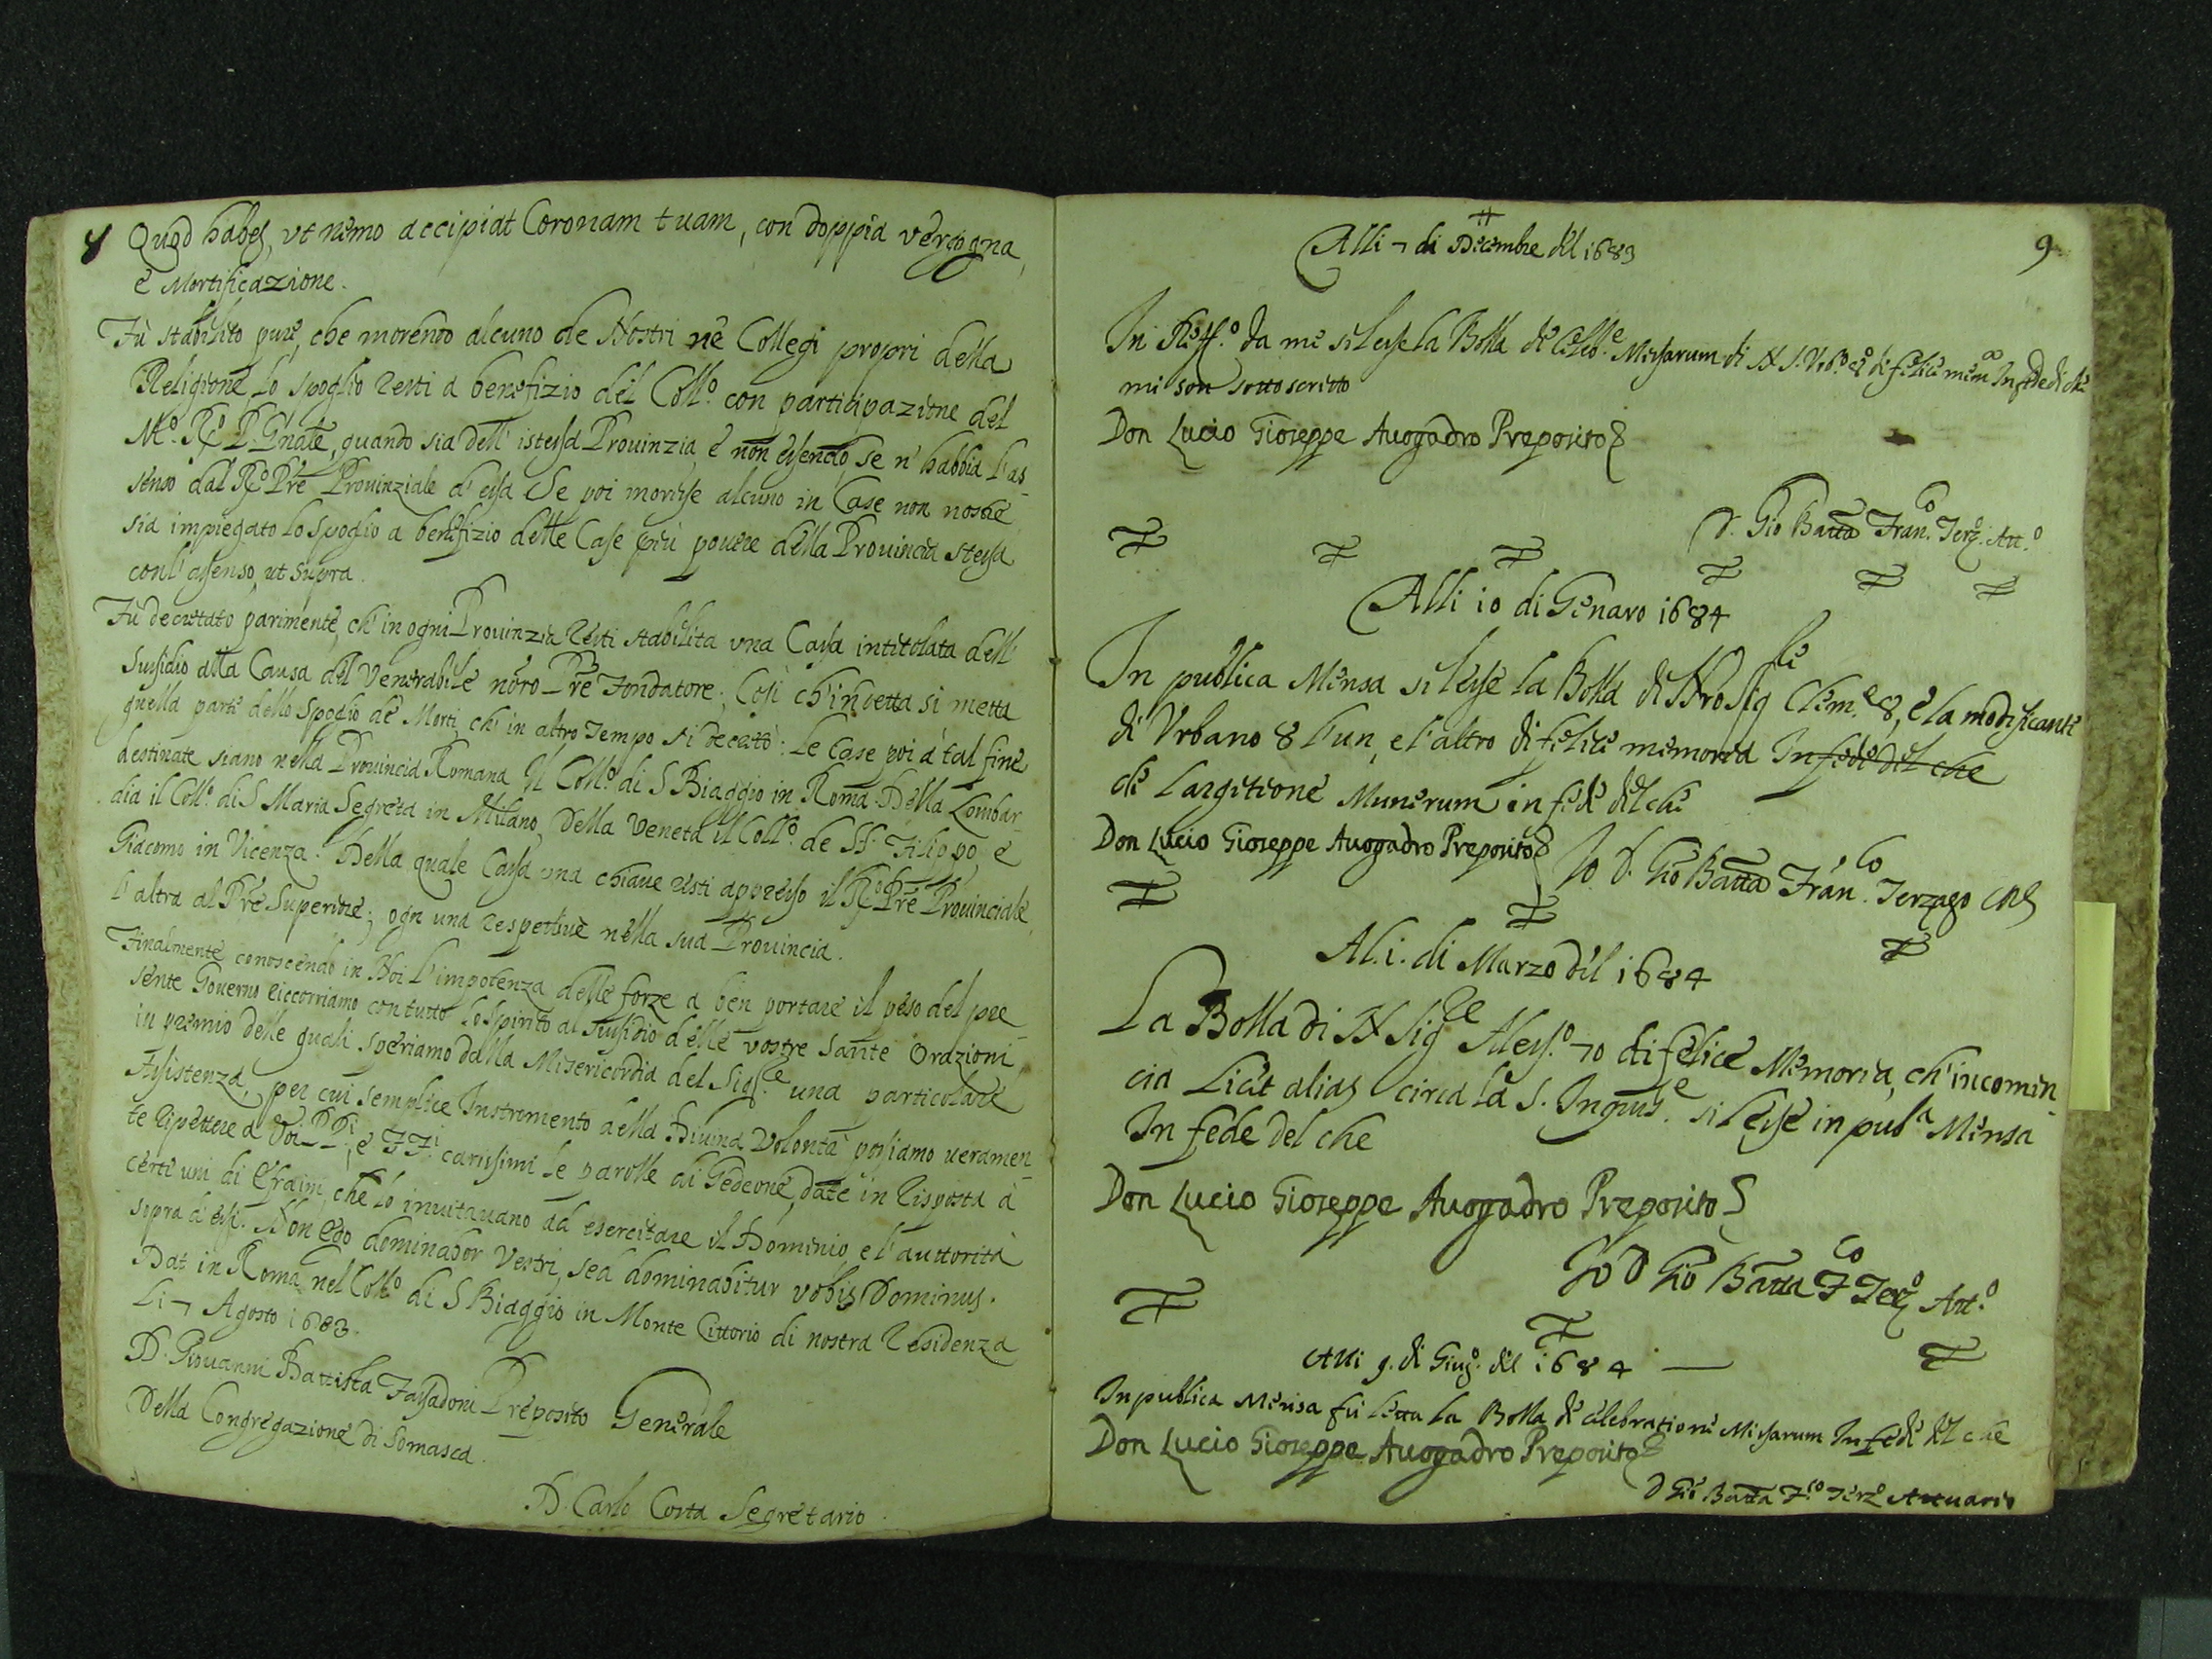 8
Quod habes, ut nemo accipiat Coronam tuam, con doppia vergogna,
e Mortificazione.
Fù stabilito pure, che morendo alcuno de Nostri ne Collegi propri della
Religione lo spoglio resti a benefizio del Coll.º con participazione del
M.º R.º P. Gñale, quando sia dell' istessa Prouinzia, e non essendo, se n' habbia l'as-
senso dal R.º Prẽ Prouinziale d' essa. Se poi morisse alcuno in Case non nostre
sia impiegato lo spoglio a benefizio delle Case più pouere della Prouincia stessa
con l' assenso, ut supra.
Fù decretato parimente, ch' in ogni Prouinzia resti stabilita una Cassa intitolata dell'
Sussidio alla Causa del Venerabile nõro Prẽ Fondatore; Così ch' in detta si metta
quella parte dello Spoglio de Morti, ch' in altro Tempo si decretò: Le Case poi à tal fine
destinate siano nella Prouincia Romana Il Coll.º di S Biaggio in Roma. Della Lombar-
dia il Coll.º di S Maria Segreta in Milano, Della Veneta il Coll.º de SS. Filippo, e
Giacomo in Vicenza. Della quale Cassa una chiaue resti appresso il R.º Prẽ Prouinciale,
l' altra al Prẽ Superiore; ogn una respettiue nella sua Prouincia.
Finalmente conoscendo in Noi l' impotenza delle forze a ben portare il peso del pre-
sente Gouerno riccorriamo con tutto lo Spirito al sussidio delle vostre sante Orazioni,
in premio delle quali speriamo dalla Misericordia del Sig.re una particolare
Assistenza, per cui semplice Instromento della Diuina Volontà possiamo ueramen-
te ripettere a Voi PP.i, e FF.i carissimi le parolle di Gedeone, date in risposta à
certi uni di Efraim, che lo inuitauano ad esercitare il Dominio, e l' auttorità
sopra d' essi. Non Ego dominabor Vestri, sed dominabitur vobis Dominus.
Dat in Roma nel Coll.º di S Biaggio in Monte Cittorio di nostra Residenza
Li 7 Agosto 1683.
D. Giouanni Battista Fassadoni Preposito Generale
Della Congregazione di Somasca.
D. Carlo Costa Segretario.
9
Alli 7 di Decembre del 1683
In da me si lesse la Bolla de Celeb.e Missarum di N S. Urb.º 8º di felice mem.a In fede di che
mi son sottoscritto
Don Lucio Gioseppe Auogadro Preposito
D. Gio Batta Fran.co Terz.º Att.º
Alli 10 di Genaro 1684
In publica Mensa si lesse la Bolla di Nro Sig.re Clem.e 8, e la modificante
di Urbano 8 l' un, e l' altro di felice memoria In fede del che
de largitione Munerum in fede del che
Don Lucio Gioseppe Auogadro Preposito
Io D. Gio Batta Fran.co Terzago
Al. i. di Marzo del 1684
La Bolla di N Sig.re Aless.º 7º di felice Memoria, ch' incomin-
cia Licet alias circa la S. Inquis.e si lesse in pub.a Mensa
In fede del che
Don Lucio Gioseppe Auogadro Preposito
Io D Gio Batta F.co Terz.º Att.º
Alli 9. di Giug.º del 1684
In publica Mensa fù letta la Bolla de celebratione Missarum In fede del che
Don Lucio Gioseppe Auogadro Preposito
D Gio Batta F.co Terz.º Attuario